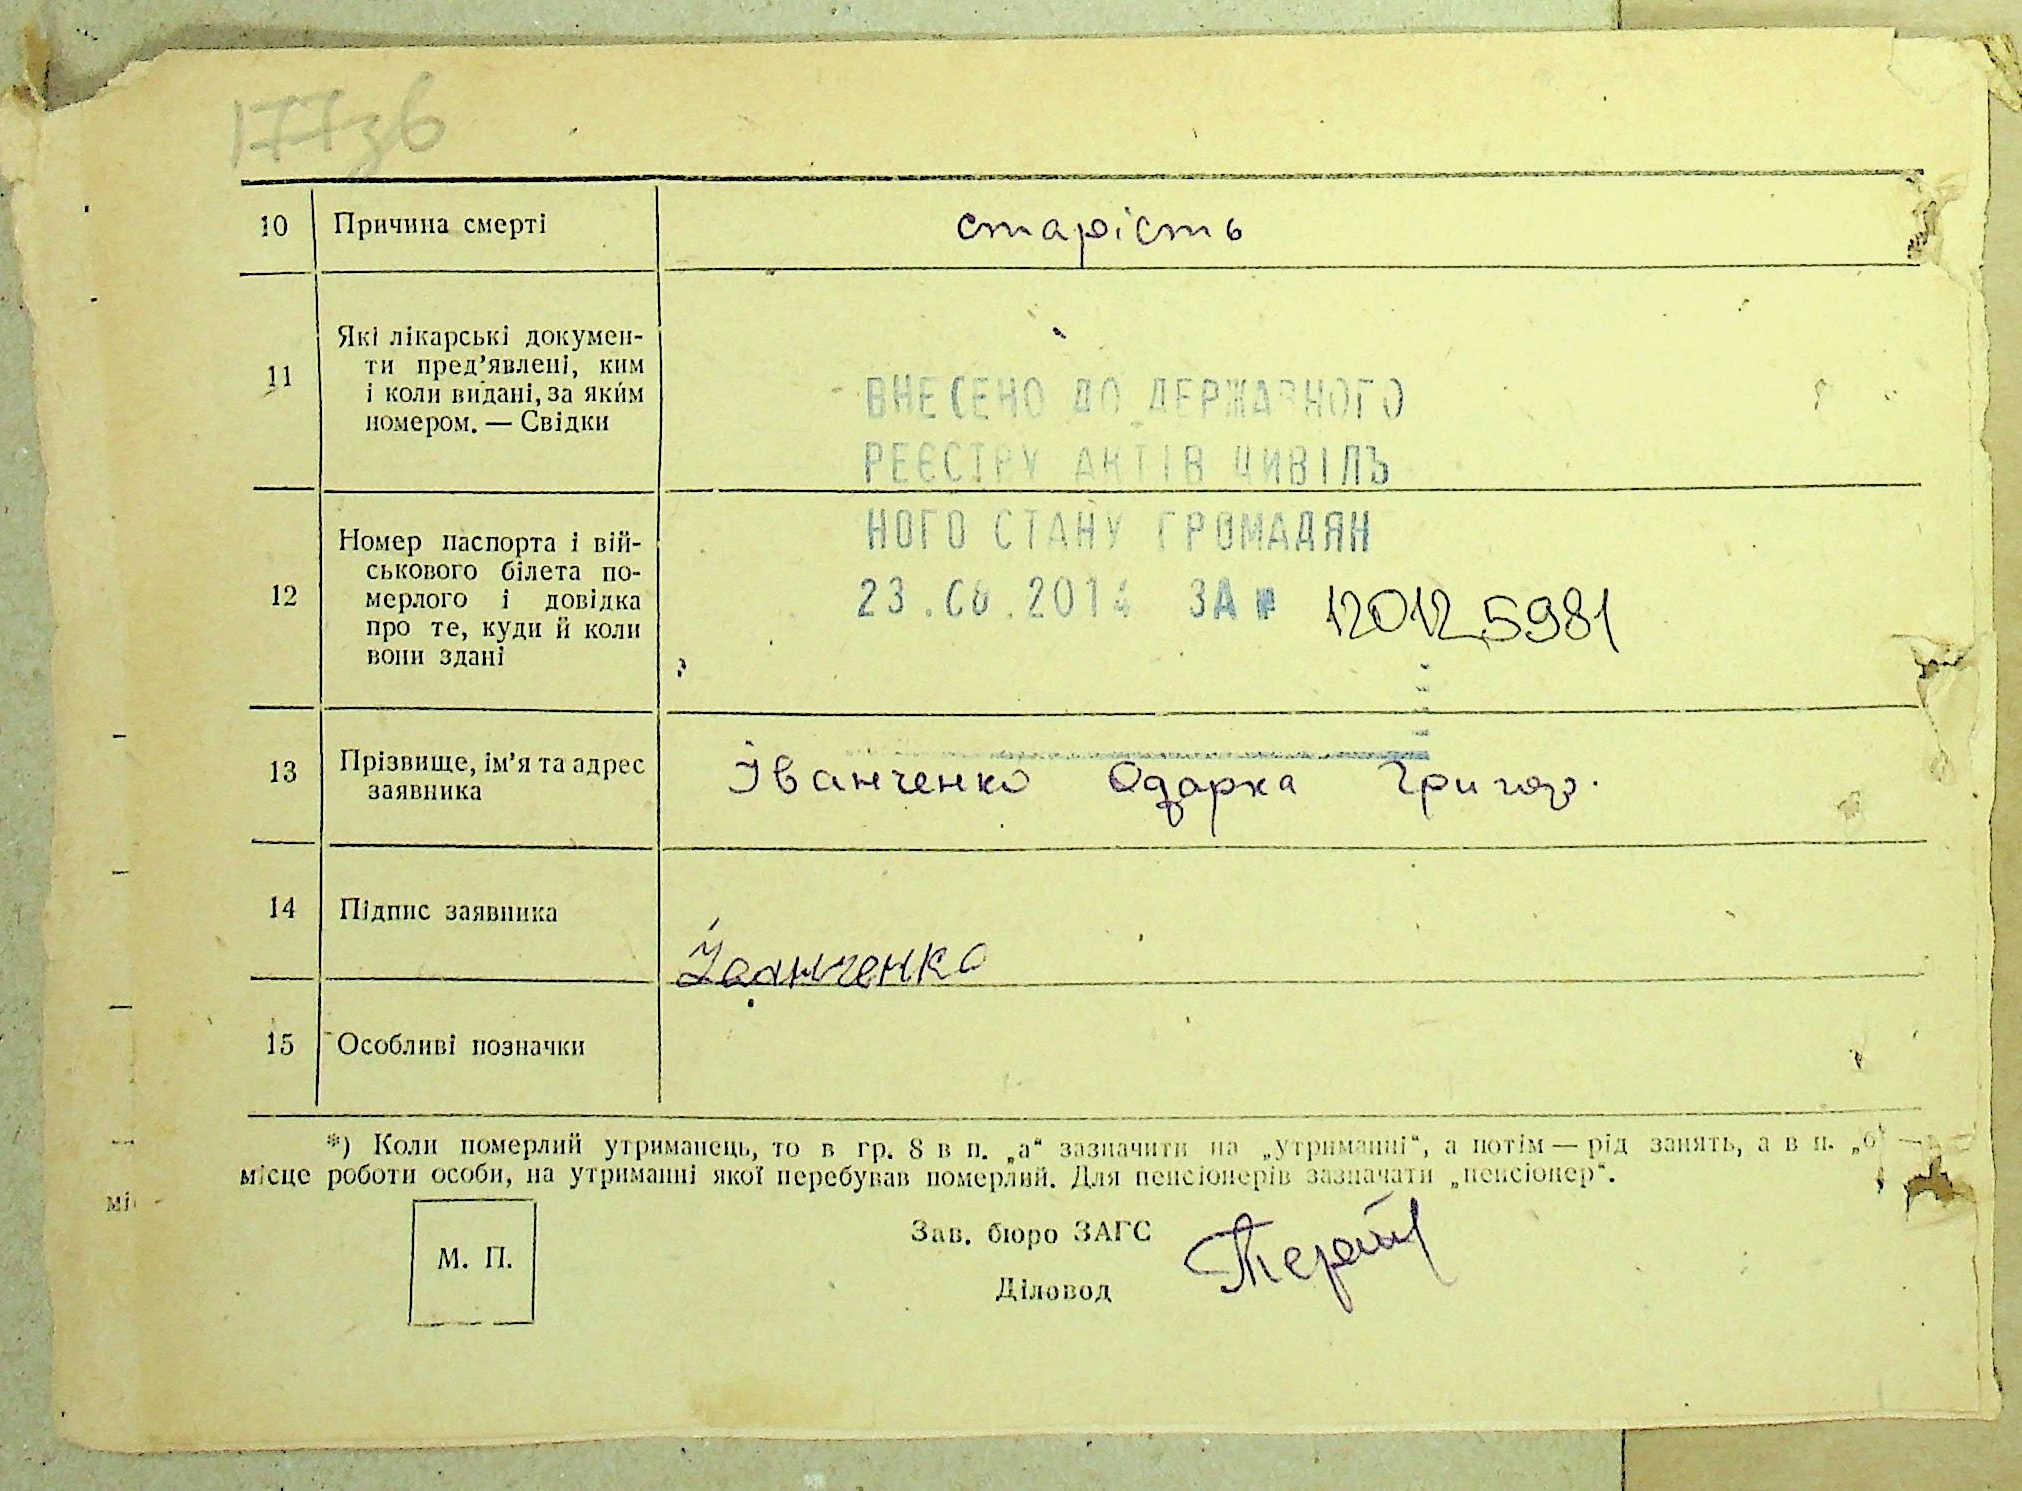 177зв
10 Причина смерті старість
11 Які лікарські докумен-
ти пред’явлені, ким
і коли видані, за яким
номером. — Свідки
ВНЕСЕНО ДО ДЕРЖАВНОГО
РЕЄСТРУ АКТІВ ЦИВІЛЬ
НОГО СТАНУ ГРОМАДЯН
23. .2014 ЗА № 120125981
12 Номер паспорта і вій-
ськового білета по-
мерлого і довідка
про те, куди й коли
вони здані
13 Прізвище, ім’я та адрес
заявника
Іванченко Одарка Григор.
14 Підпис заявника
Іванченко
15 Особливі позначки
*) Коли померлий утриманець, то в гр. 8 в п. „а“ зазначити на „утриманні“, а потім — рід занять, а в п. „б“ —
місце роботи особи, на утриманні якої перебував померлий. Для пенсіонерів зазначати „пенсіонер“.
М. П.
Зав. бюро ЗАГС
Діловод